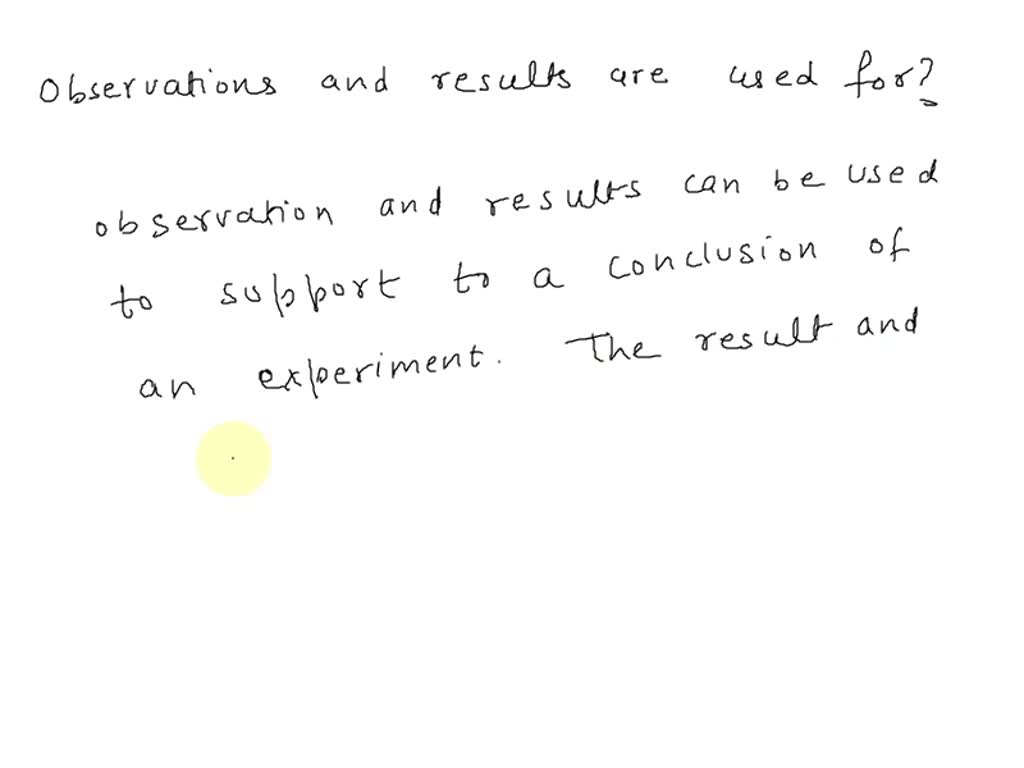 Observations and results are used for?
observation and results can be used
to support to a conclusion of
an experiment. The result and